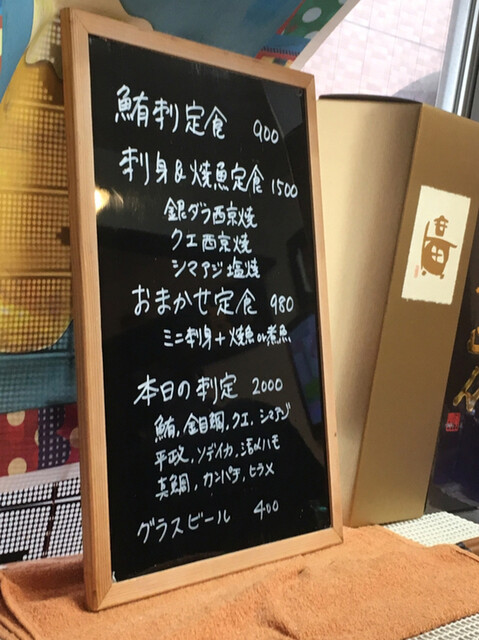 鮪刺定食 900
刺身&焼魚定食 1500
銀ダラ西京焼
クエ西京焼
シマアジ塩焼
おまかせ定食 980
ミニ刺身+焼魚or煮魚
本日の刺定 2000
鮪,金目鯛,クエ,シマアジ
平政,ソデイカ,活〆ハモ
真鯛,カンパチ,ヒラメ
グラスビール 400